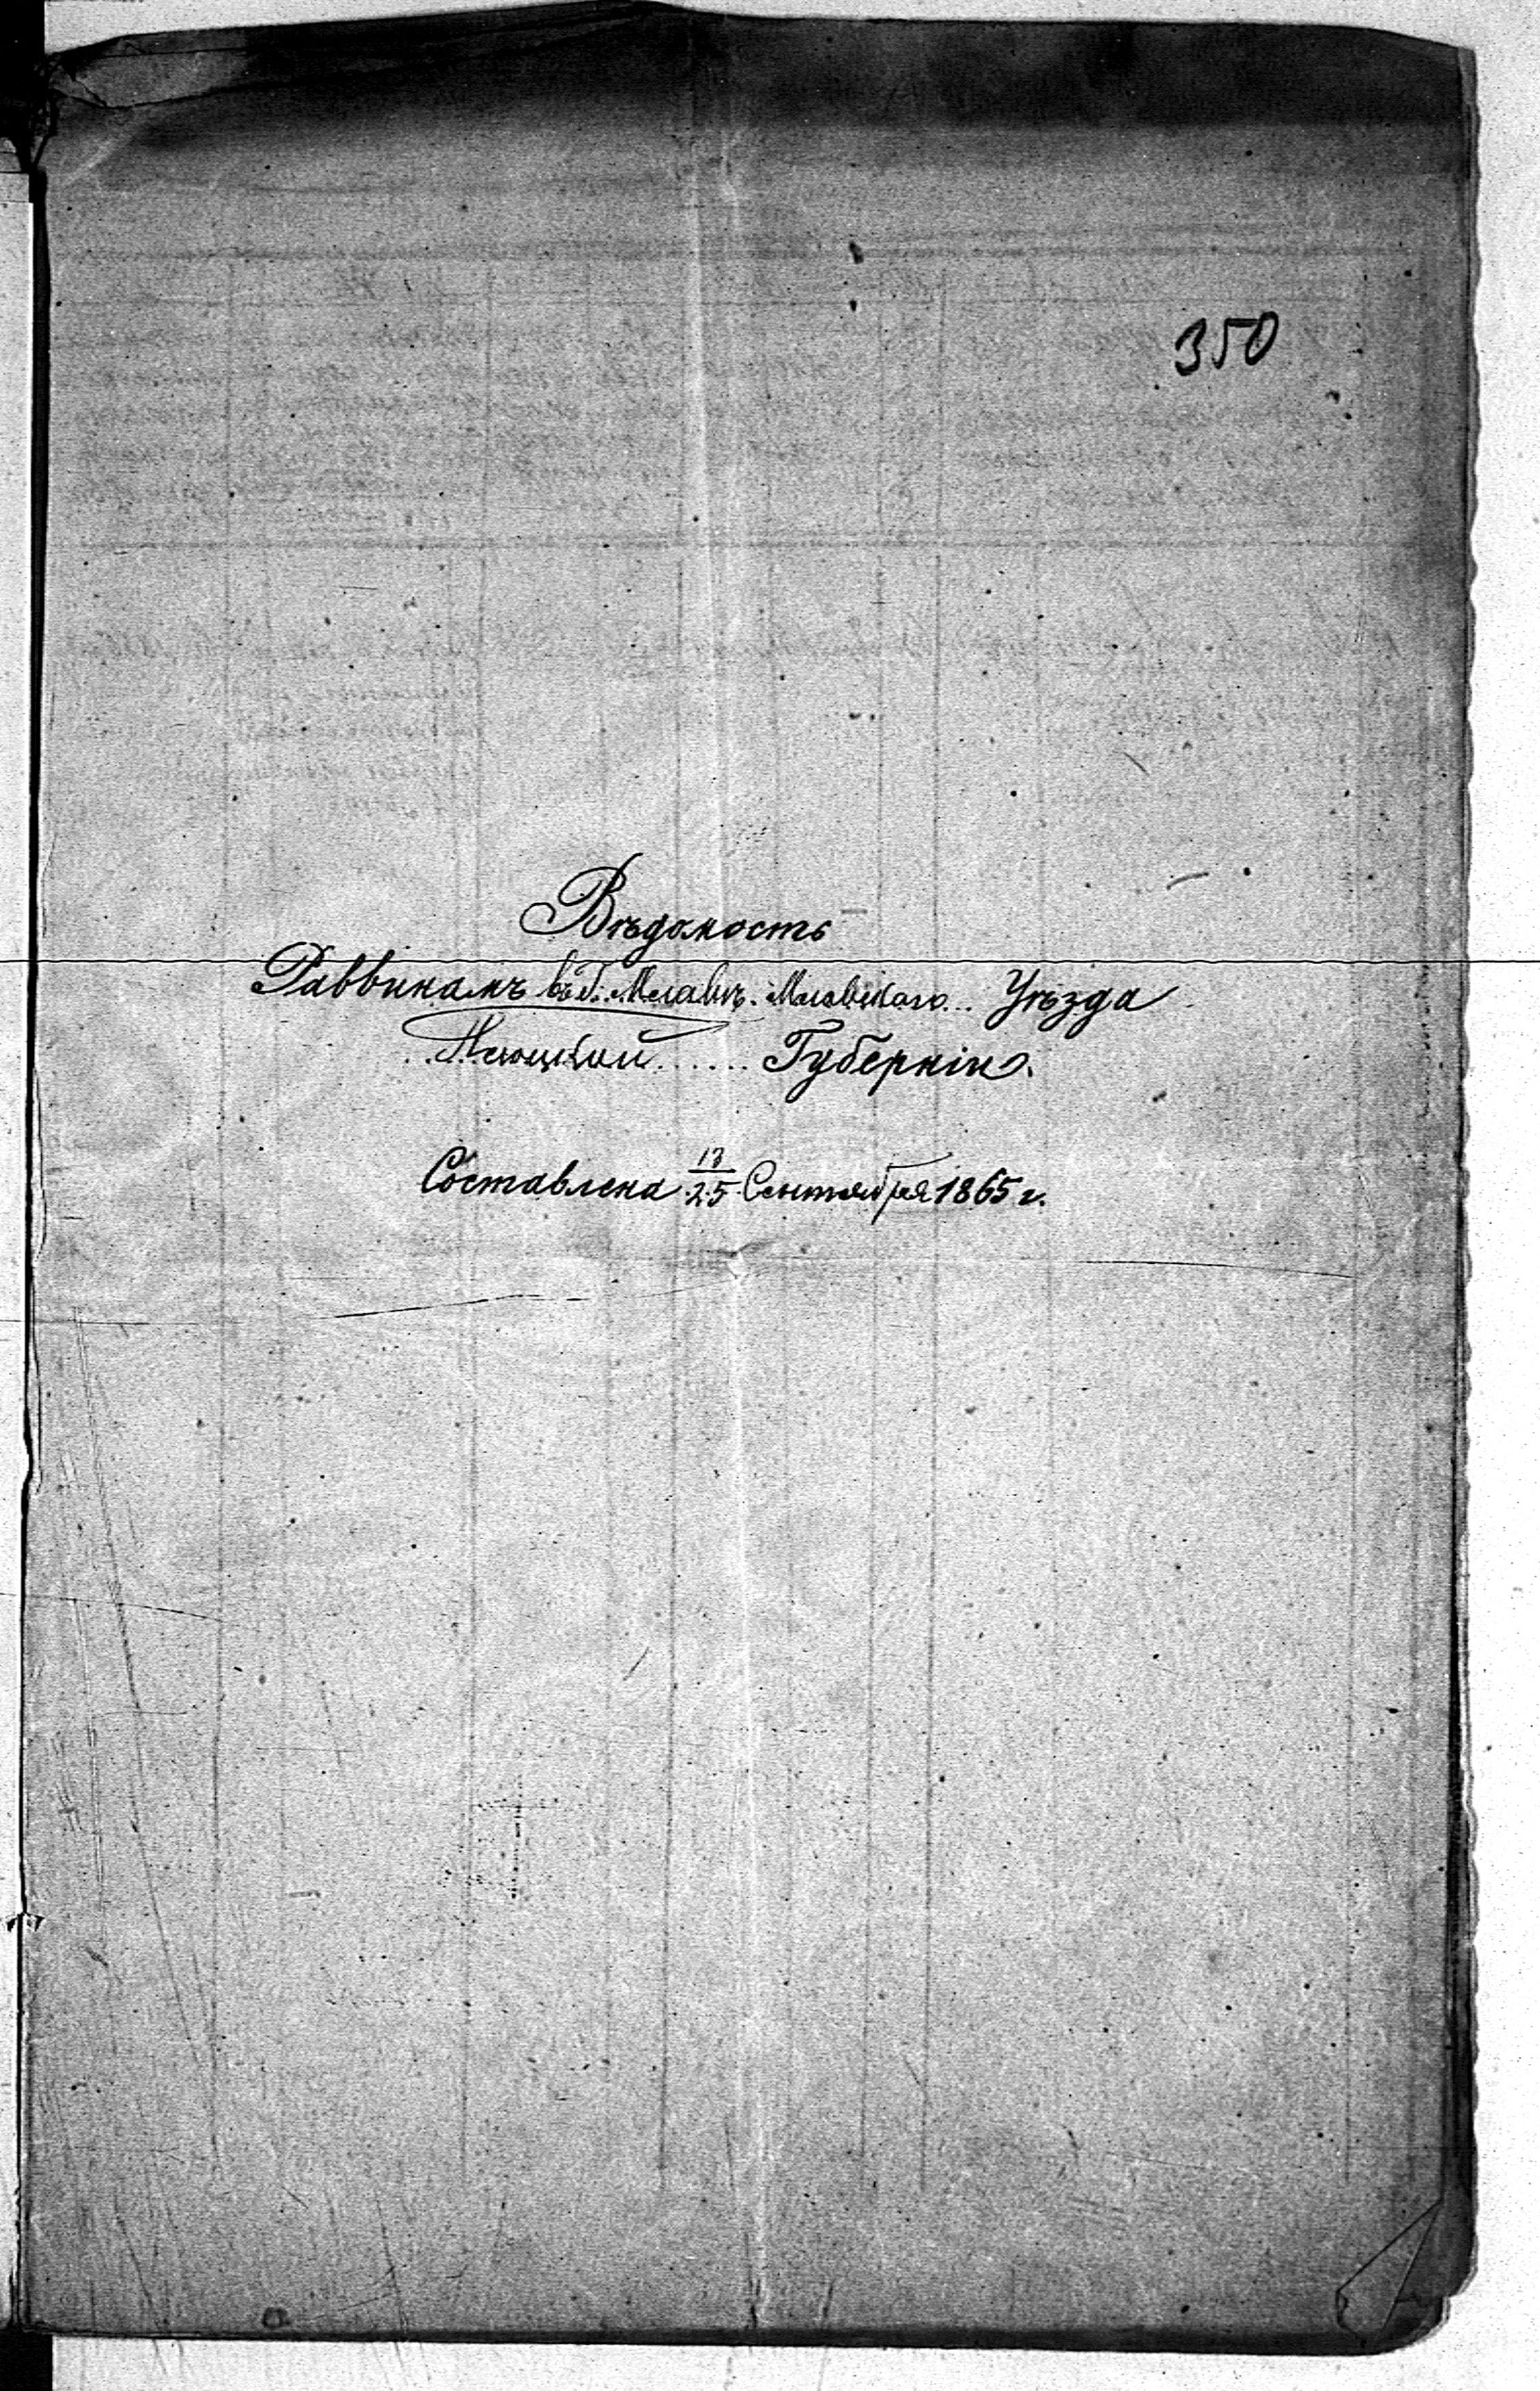 350
Вѣдомость
Раввинамъ въ Г. Млавѣ. Млавскаго... Уѣзда
..Плоцкой...... Губерніи.
Составлена 13/25 Сентября 1865 г.